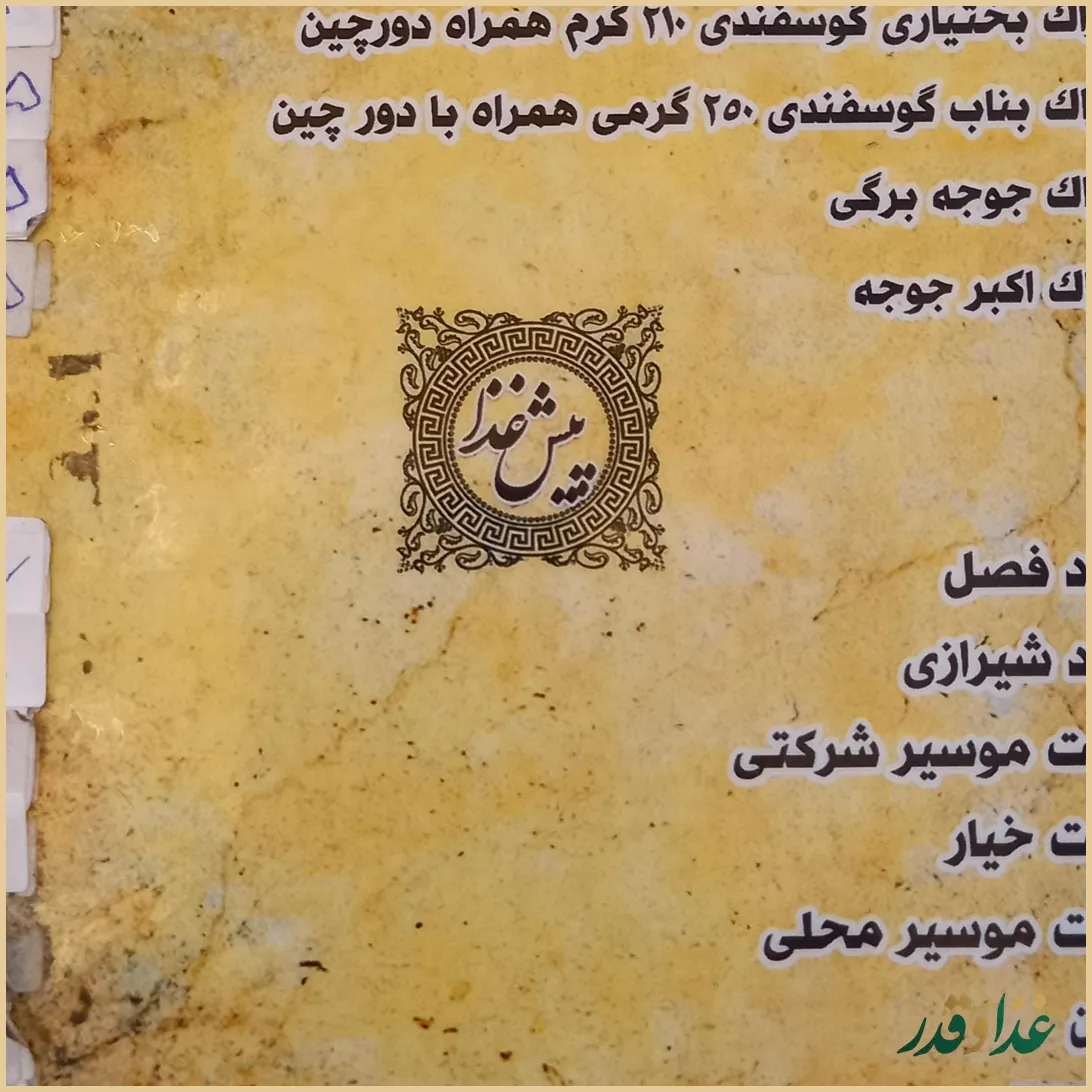 اك بختیاری گوسفندی ۲۱۰ گرم همراه دورچین
اك بناب گوسفندی ۲۵۰ گرمی همراه با دور چین
اك جوجه برگی
اك اکبر جوجه
پیش غذا
د فصل
د شیرازی
ت موسیر شرکتی
ت خیار
ت موسیر محلی
ن
غذا و قدر